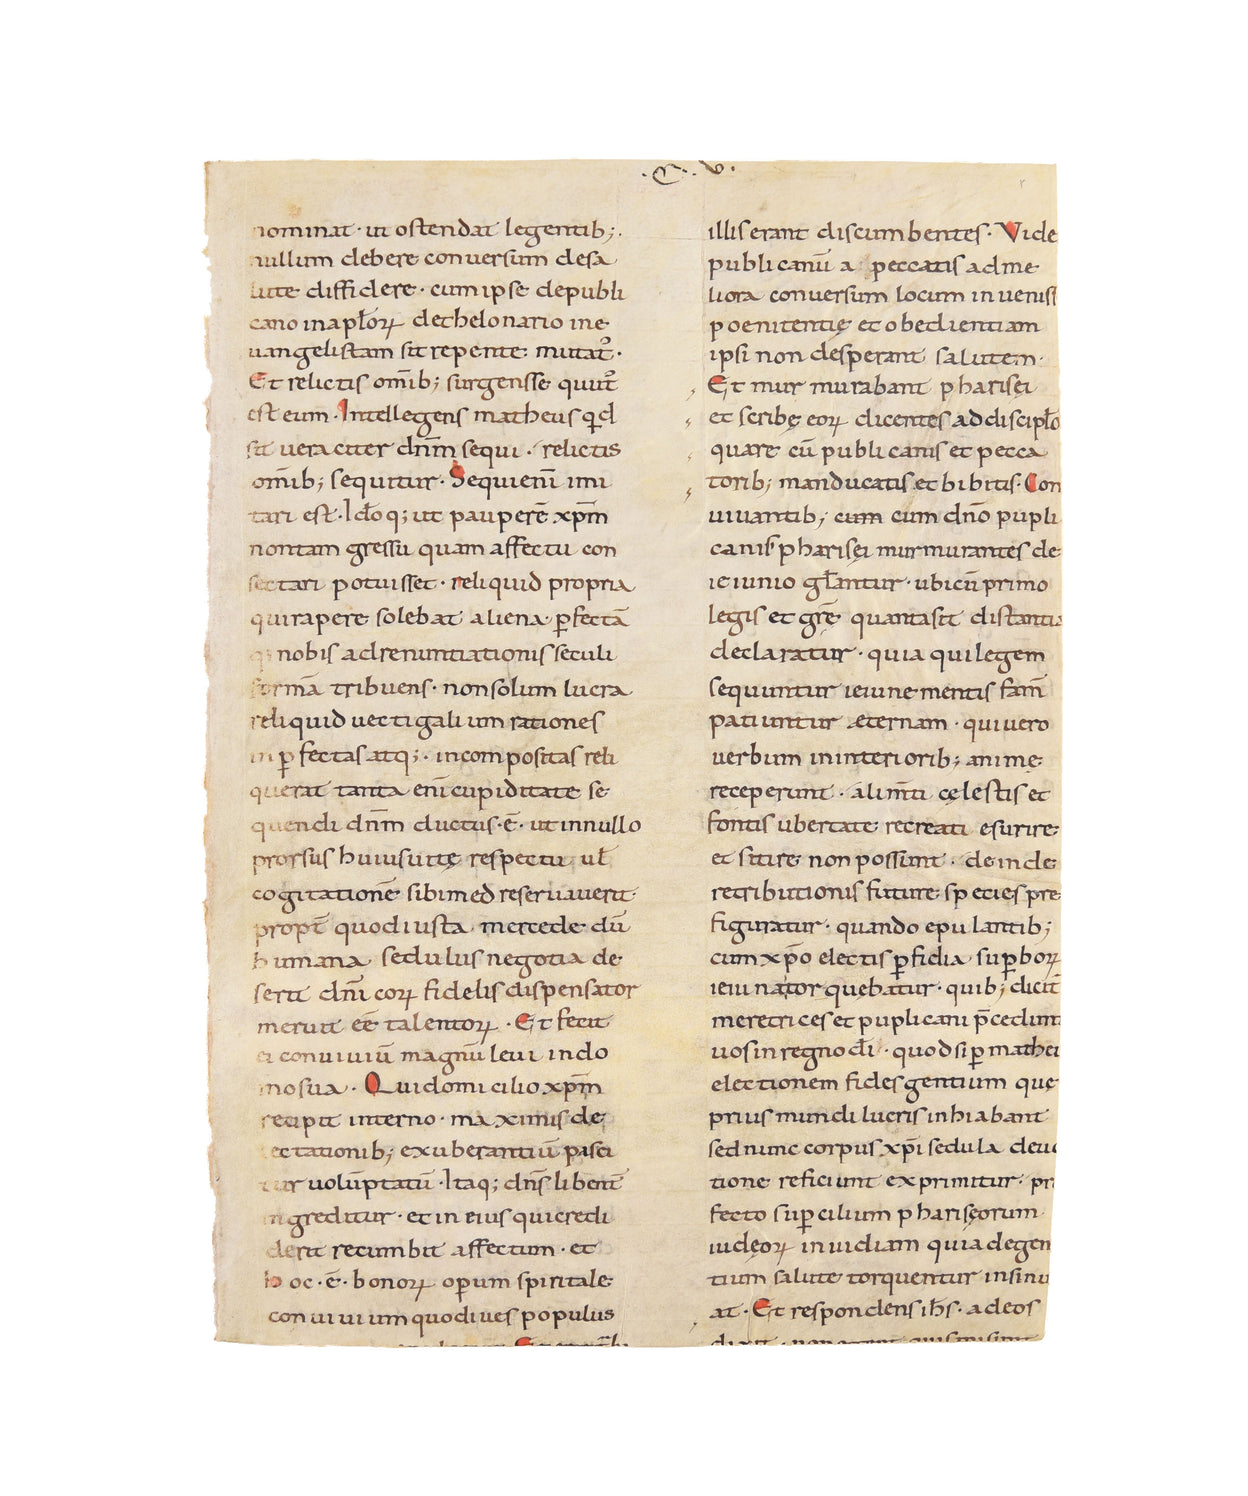 .C. .v.
nominat· ut ostendat legentib;·
nullum debere conversum desa
lute diffidere· cum ipse depubli
cano inapłorꝝ dethelonario ine
uangelistam sit repente: mutat᷒·
Et relictis om̄ib; surgensse quut᷒
est eum· Intellegens matheus qd̄
sit veraciter dn̄m sequi· relictis
om̄ib; sequitur· Sequi eni imi
tari est· Ido q; ut pauperē xp̄m
nontam gressu quam affectu con
sectari potuisset· reliquid propria
qui rapere solebat aliena ꝑfectā
nobis adrenuntiationis seculi
formā tribuens· non solum lucra
reliquid vectigalium rationes
inꝑfectas atq;· incompositas reli
querat tanta enī cupiditate se
quendi dn̄m ductus·ē· ut innullo
prorsus huius uitę respectu ul̄
cogitationē sibimed reservaverit·
propt̄ quod iusta mercede dū
humana sedulus negotia de
serit dn̄icorꝝ fidelis dispensator
meruit eē talentorꝝ· Et fecit
ei conviviū magnū levi indo
mo sua· Qui domicilio xp̄m
recipit interno· maximis de
lectationib; exuberantiū pasci
tur volūptatū· Itaq; dn̄s libent̄
ingreditur· et in eius qui credi
derit recumbit affectum· et
hoc·ē·bonorꝝ operum spiritale
convivium quo dives populus
illis erant discumbentes· Vide
publicanū a peccatis ad me
liora conversum locum invenis
poenitentię et obedientiam
ipsi non desperant salutem·
Et murmurabant pharisęi
et scribę eorꝝ dicentes ad discipło
quare cū publicanis et pecca
torib; manducatis et bibitis· Con
vivantib; cum cum dn̄o pupli
canis pharisęi murmurantes de
ieiunio gl̄antur· ubi cū primo
legis et grē quanta sit distantia
declaratur· quia qui legem
sequuntur ieiune mentis fam̄
patiuntur æternam· qui vero
verbum in interiorib; animę
receperunt· alim̄ti cęlestis et
fontis ubertate recreati esurire
et sitire non possunt· deinde
retributionis future species pre
figuratur· quando epulantib;
cum xp̄o electis ꝑfidia suꝑborꝝ
ieiunator quebatur· quib; dicit̄
meretrices et puplicani p̄cedunt
vos in regno di· quod si ꝑ mathei
electionem fides gentium quę
prius mundi lucris inhiabant
sed nunc corpus xp̄i sedula devo
tione reficiunt exprimitur· pro
fecto suꝑcilium pharisęorum
iudęorꝝ invidiam quia degen
tium salute torquentur insinu
at· Et respondens ih̄s· ad eos